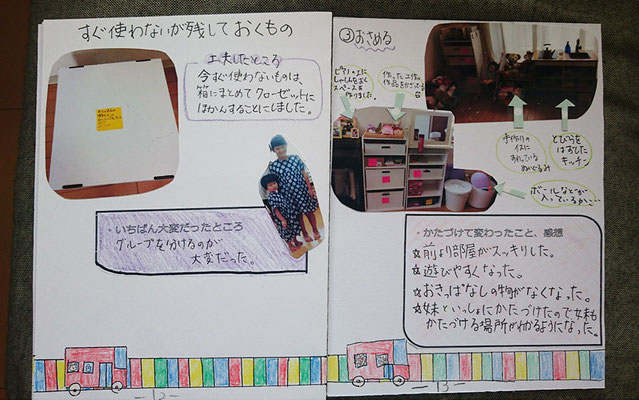 すぐ使わないが残しておくもの
工夫したところ
今すぐ使わないものは、
箱にまとめてクローゼットに
ほかんすることにしました。
・いちばん大変だったところ
グループを分けるのが
大変だった。
-12-
③おさめる
作った工作の
作品をかざる台
手作りの
イスに
すわっている
ぬいぐるみ
とびらを
はずした
キッチン
ボールなどが
入っているかご…
・かたづけて変わったこと、感想
☆前より部屋がスッキリした。
☆遊びやすくなった。
☆おきっぱなしの物がなくなった。
☆妹といっしょにかたづけたので妹も
かたづける場所がわかるようになった。
-13-